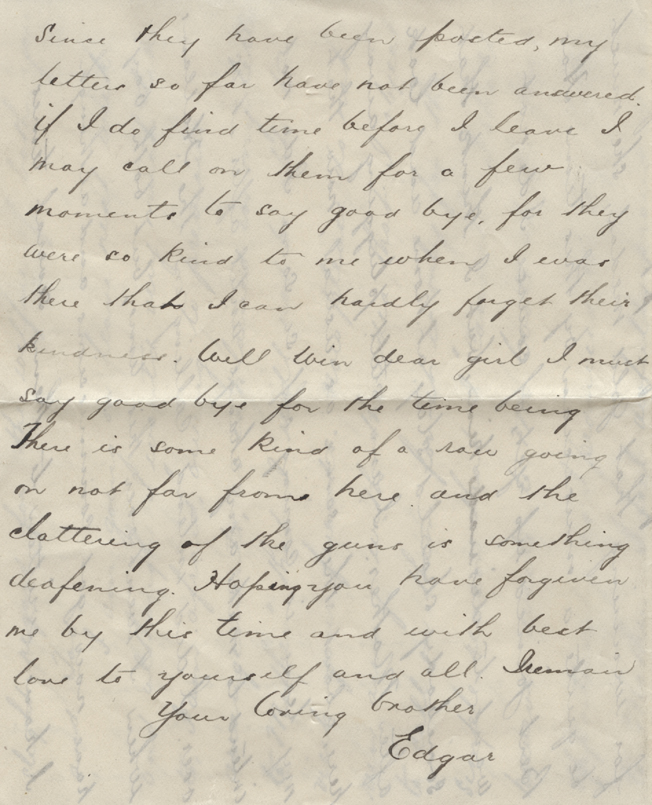 Since they have been posted, my
letters so far have not been answered.
if I do find time before I leave I
may call on them for a few
moments to say good bye, for they
were so kind to me when I was
there that I can hardly forget their
kindness. Well Win dear girl I must
say good bye for the time being
There is some kind of a row going
on not far from here and the
clattering of the guns is something
deafening. Hoping you have forgiven
me by this time and with best
love to yourself and all. I remain
Your loving brother
Edgar